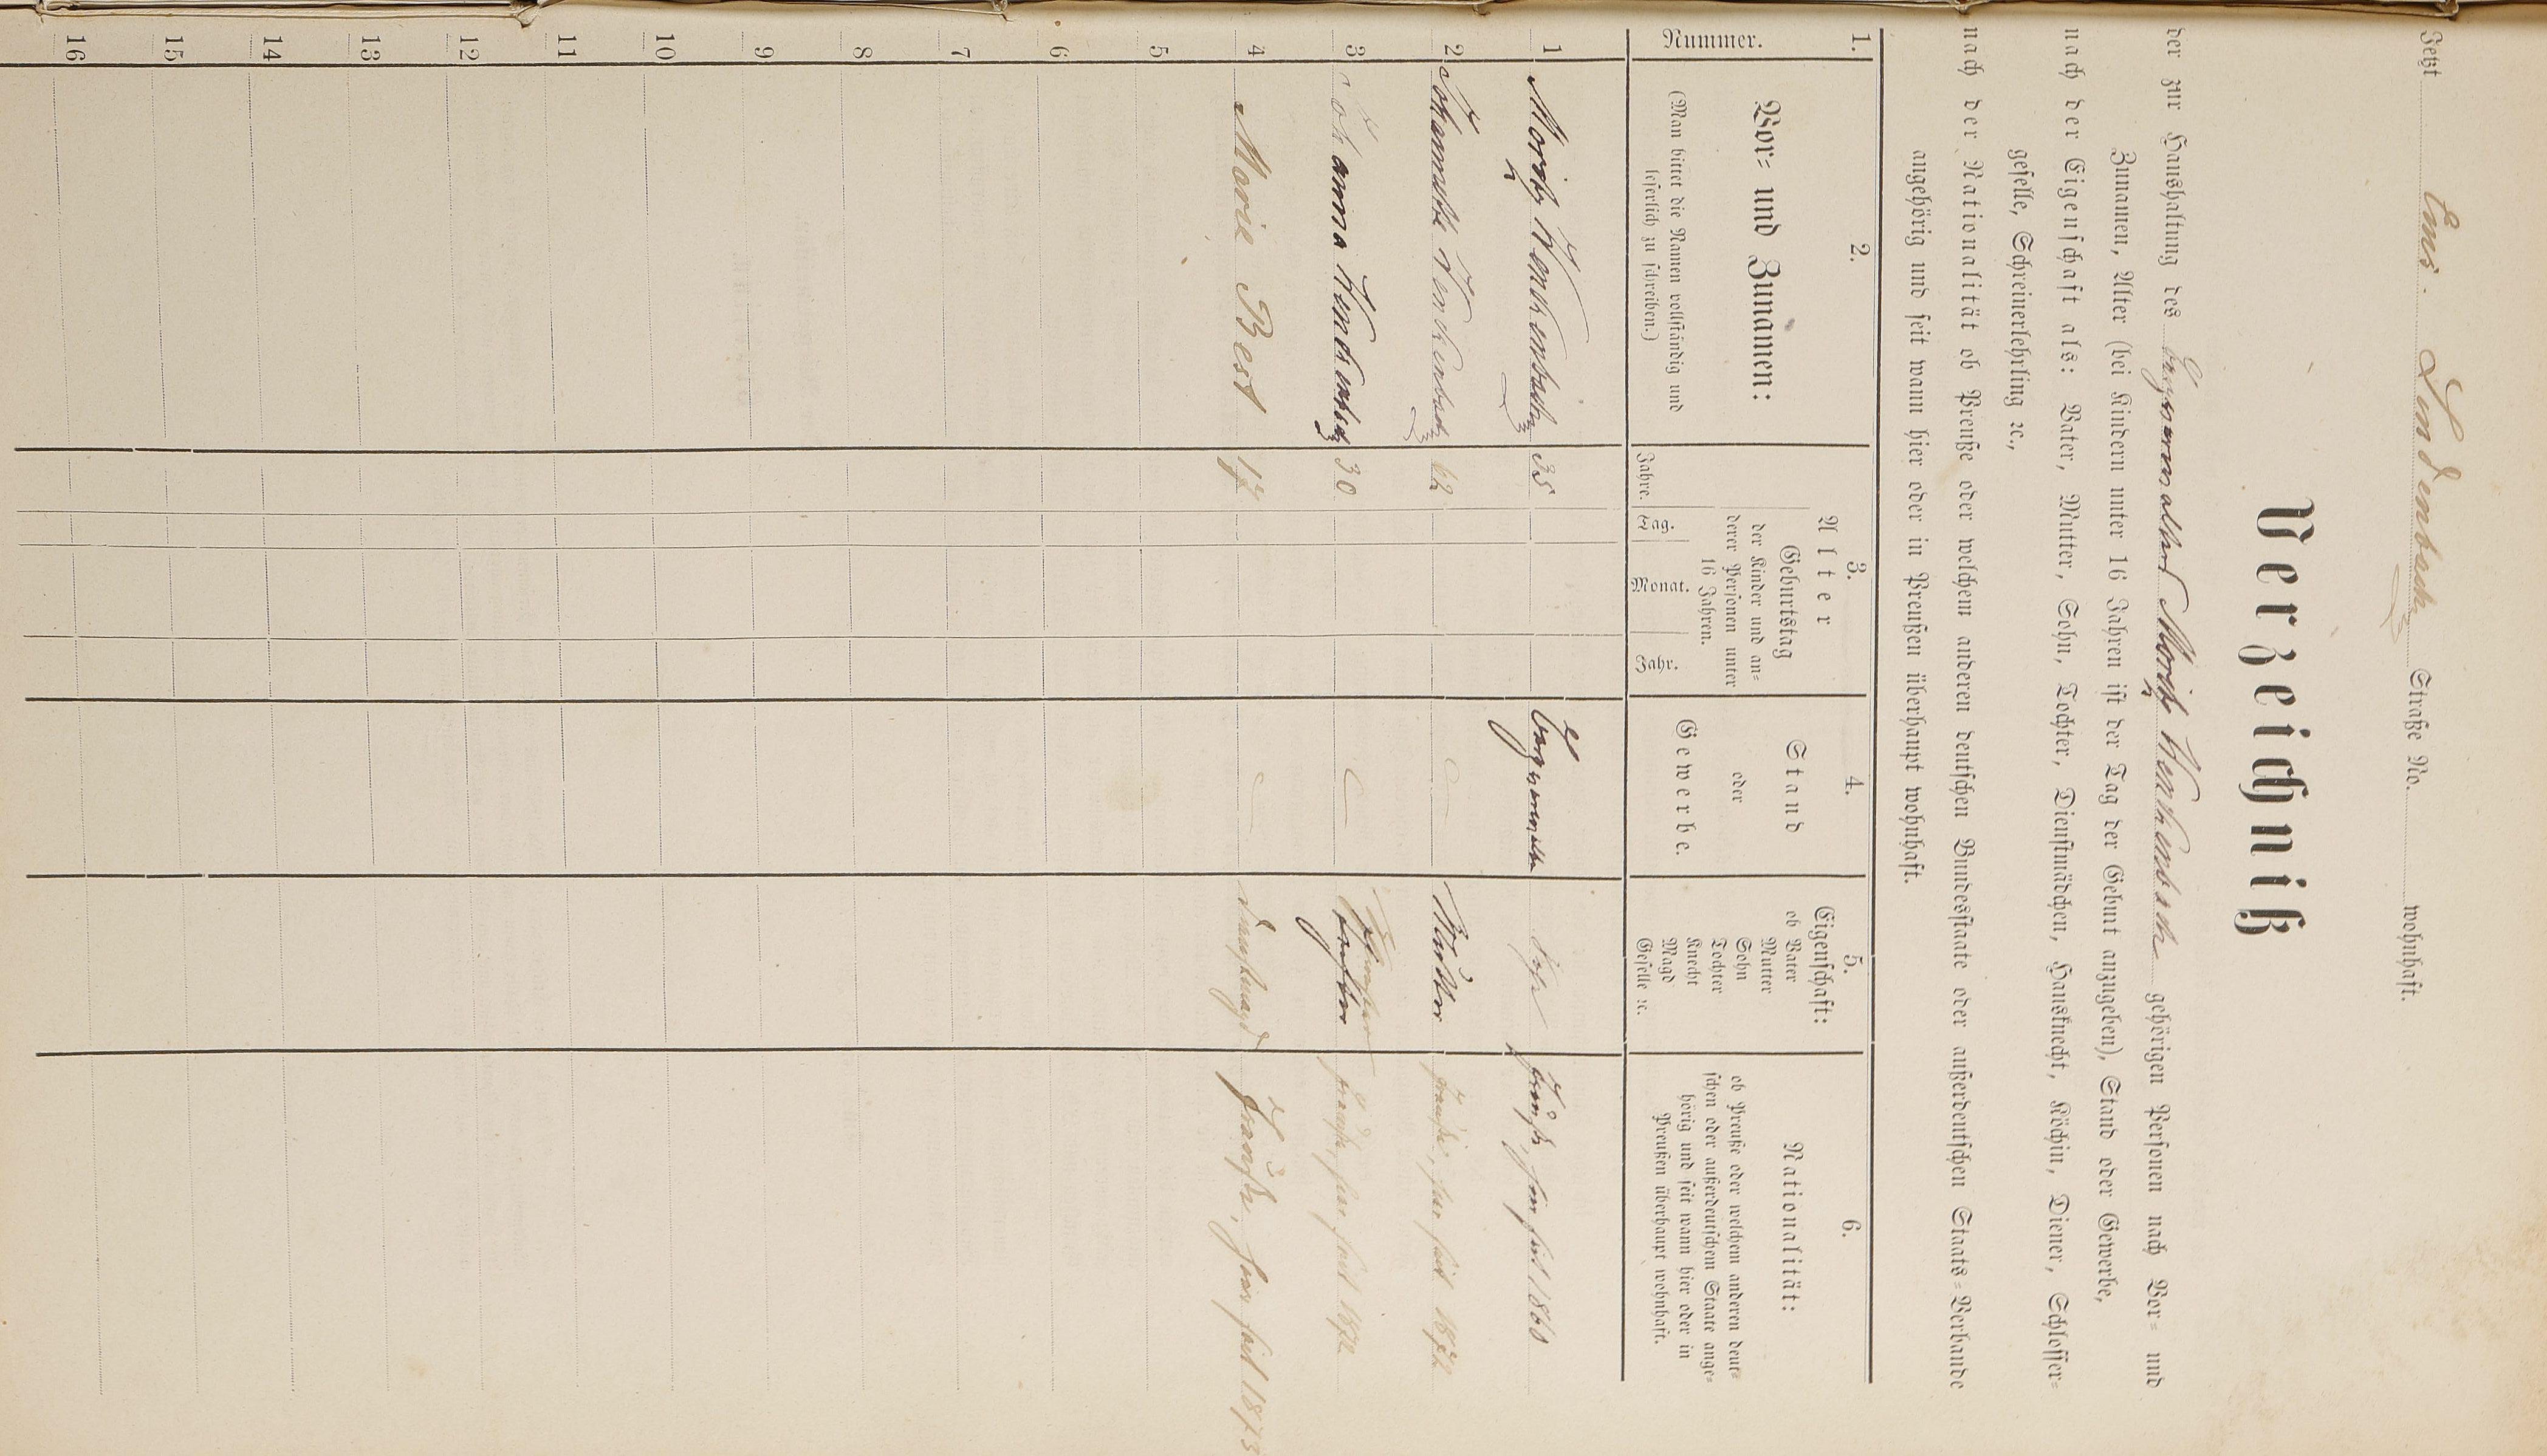 Jetzt Ems. Lindenbach Straße No. wohnhaft.
Verzeichniß
der zur Haushaltung des Moritz gehörigen Personen nach Vor- und
Zunamen, Alter (bei Kindern unter 16 Jahren ist der Tag der Geburt anzugeben), Stand oder Gewerbe,
nach der Eigenschaft als: Vater, Mutter, Sohn, Tochter, Dienstmädchen, Hausknecht, Köchin, Diener, Schlosser-
geselle, Schreinerlehrling ꝛc.,
nach der Nationalität ob Preuße oder welchem anderen deutschen Bundesstaate oder außerdeutschen Staats-Verbande
angehörig und seit wann hier oder in Preußen überhaupt wohnhaft.
1. 2. 3. 4. 5. 6.
Nummer.
Vor- und Zunamen:
(Man bittet die Namen vollständig und
leserlich zu schreiben.)
Alter
Jahre.
Geburtstag
der Kinder und an-
derer Personen unter
16 Jahren.
Tag. Monat. Jahr.
Stand
oder
Gewerbe.
Eigenschaft:
ob Vater
Mutter
Sohn
Tochter
Knecht
Magd
Geselle ꝛc.
Nationalität:
ob Preuße oder welchem anderen deut-
schen oder außerdeutschem Staate ange-
hörig und seit wann hier oder in
Preußen überhaupt wohnhaft.
1 Moritz 35 Preuße, hier seit 1860
2 Johannette 62 Mutter Preuße, hier seit 1872
3 Johanna 30 Schwester Preuße, hier seit 1872
4 Marie Best 17 Dienstmagd Preuße, hier seit 1873
5
6
7
8
9
10
11
12
13
14
15
16